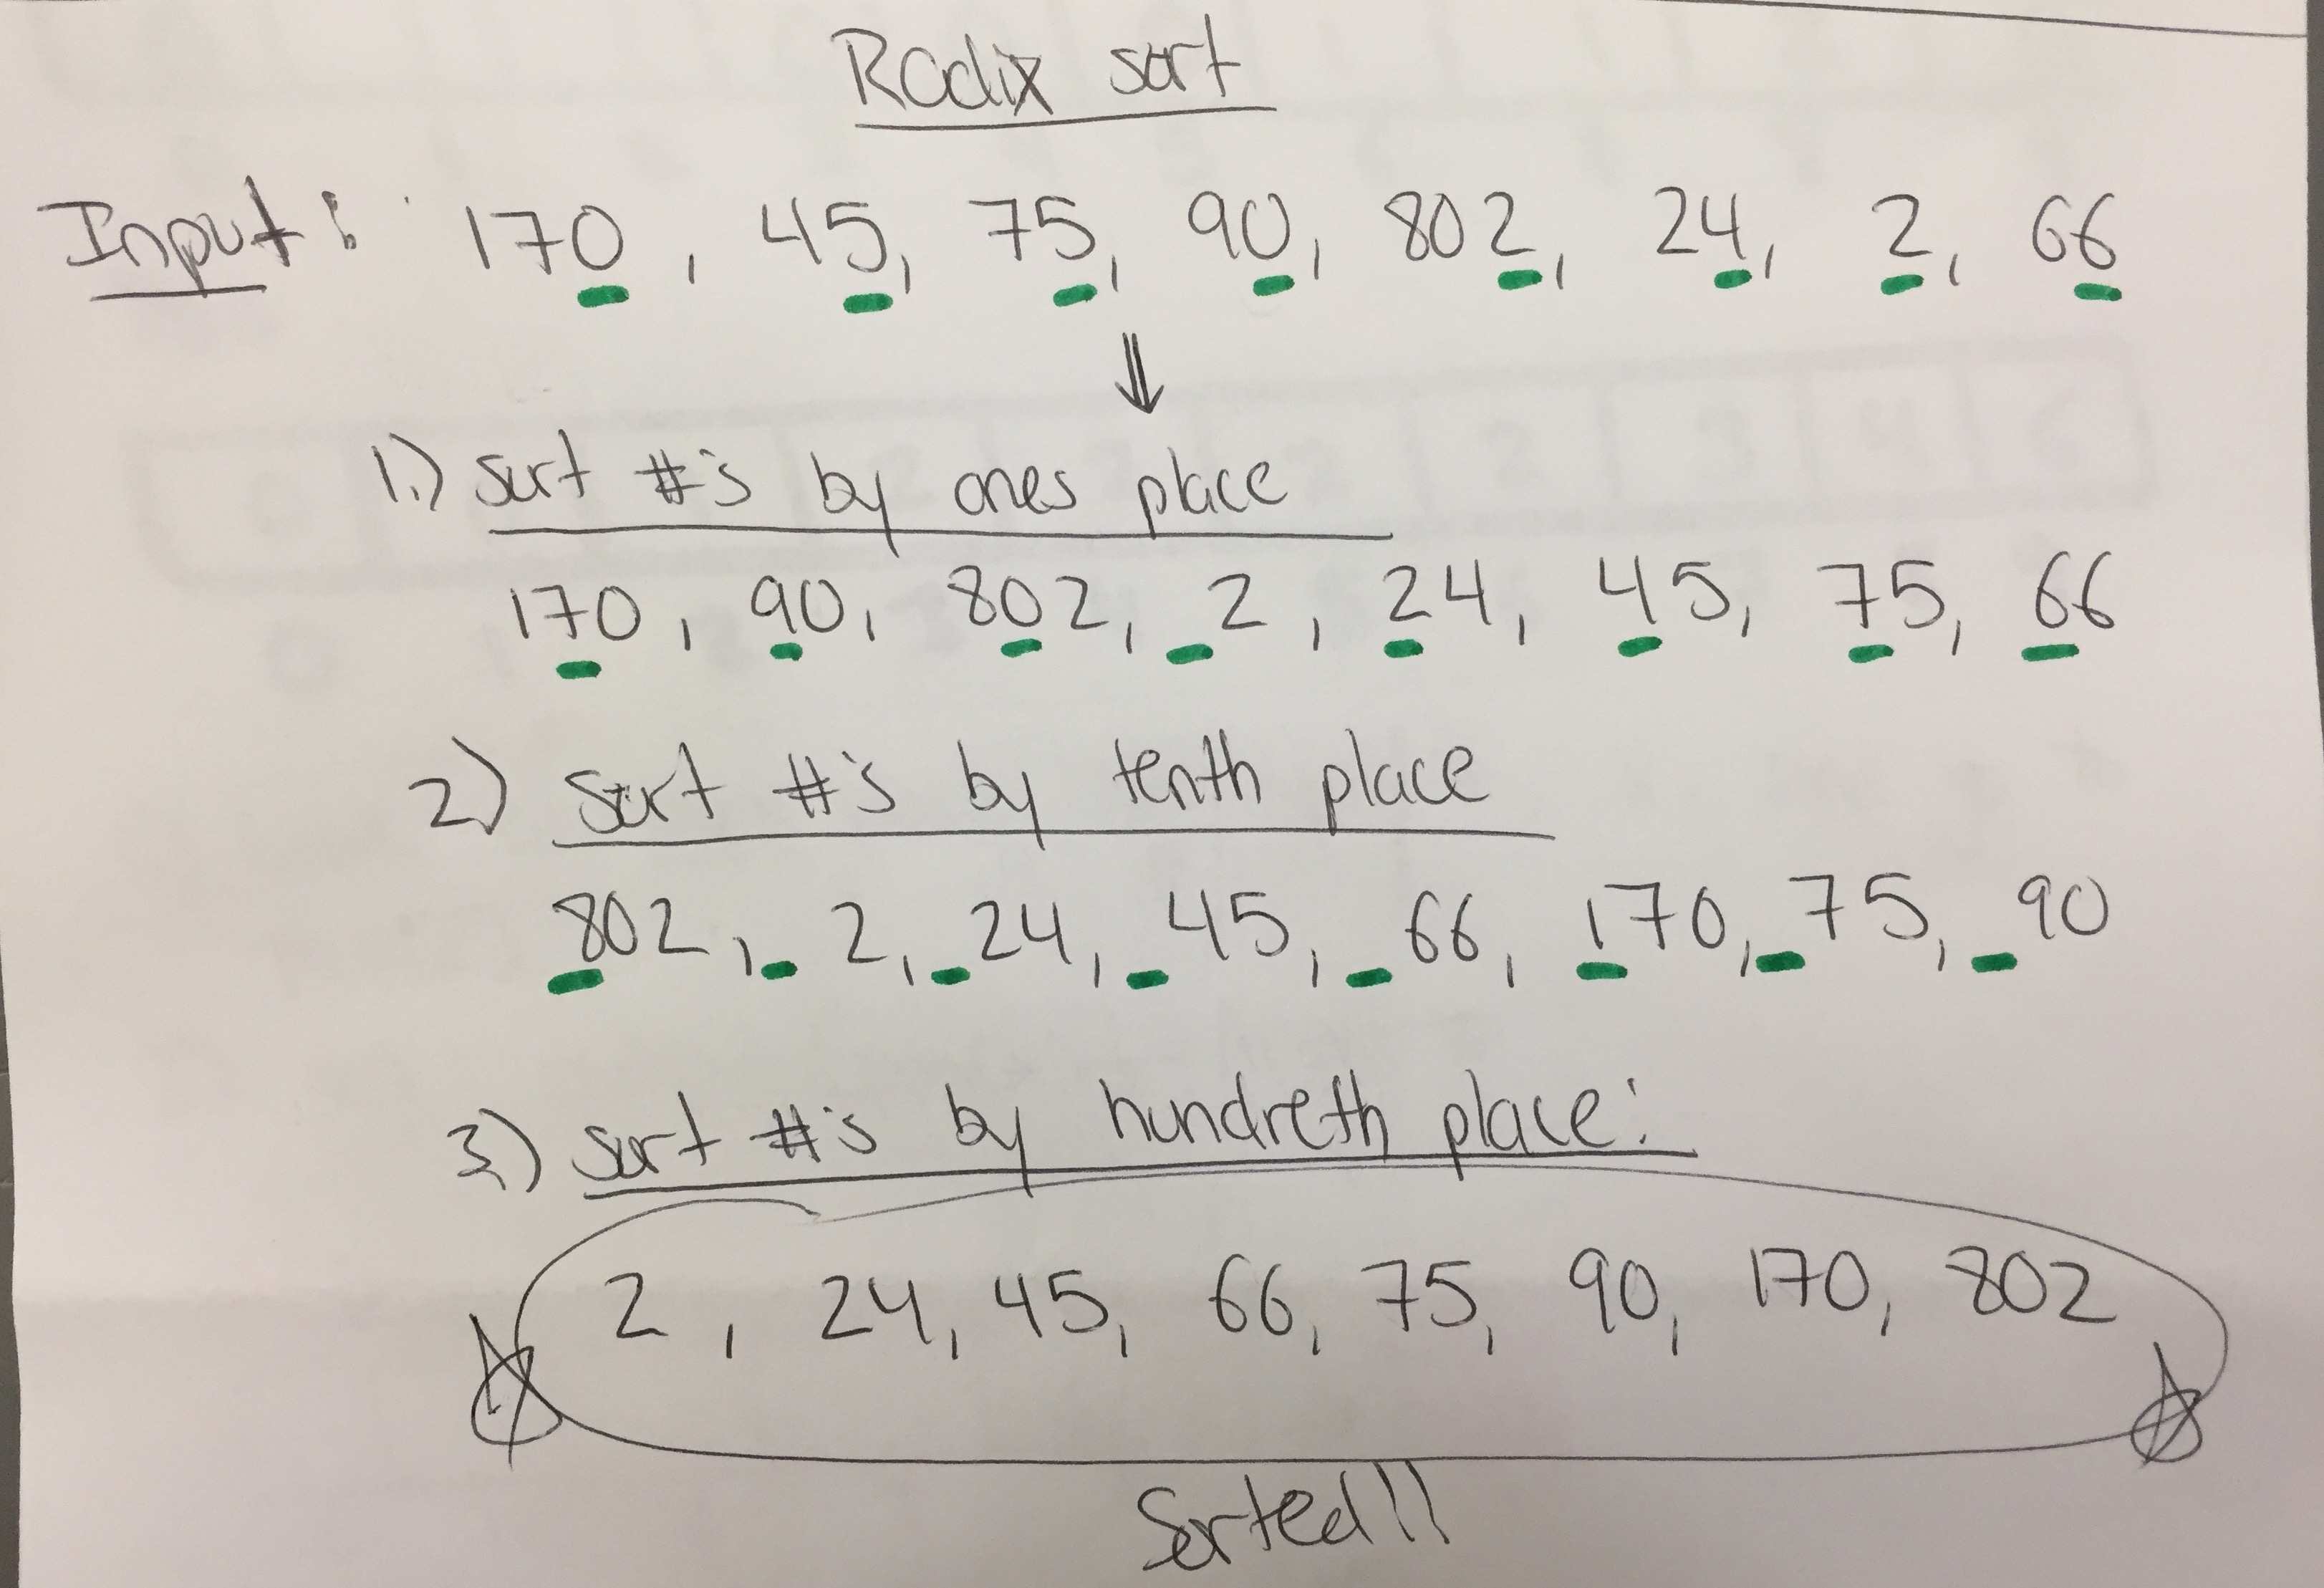 Radix sort
Input: 170, 45, 75, 90, 802, 24, 2, 66
1.) sort #'s by ones place
170, 90, 802, 2, 24, 45, 75, 66
2) sort #'s by tenth place
802, 2, 24, 45, 66, 170, 75, 90
3) sort #'s by hundreth place:
2, 24, 45, 66, 75, 90, 170, 802
Sorted!!